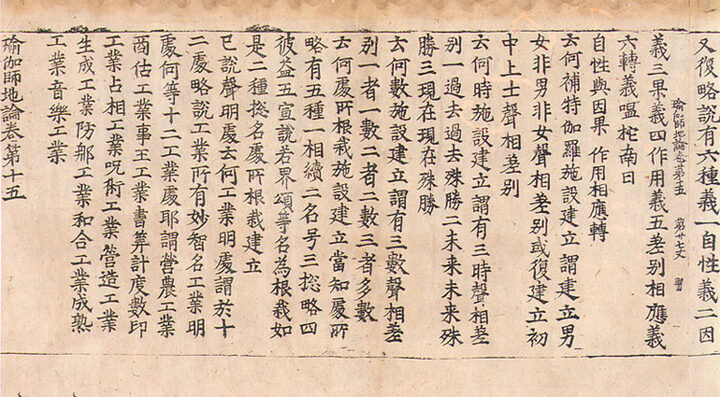 又復略說有六種義一自性義二因
瑜伽師地論卷第十五 第廿七丈
義三果義四作用義五差别相應義
六轉義嗢柁南曰
自性與因果 作用相應轉
云何補特伽羅施設建立謂建立男
女非男非女聲相差别或復建立初
中上士聲相差别
云何時施設建立謂有三時聲相差
别一過去過去殊勝二未来未来殊
勝三現在現在殊勝
云何數施設建立謂有三數聲相差
别一者一數二者二數三者多數
云何處所根栽施設建立當知處所
略有五種一相續二名号三揔略四
彼益五宣說若界頌等名為根栽如
是二種揔名處所根栽建立
已說聲明處云何工業明處謂於十
二處略說工業所有妙智名工業明
處何等十二工業處耶謂營農工業
商估工業事王工業書筭計度數印
工業占相工業呪術工業營造工業
生成工業防那工業和合工業成熟
工業音樂工業
瑜伽師地論卷第十五